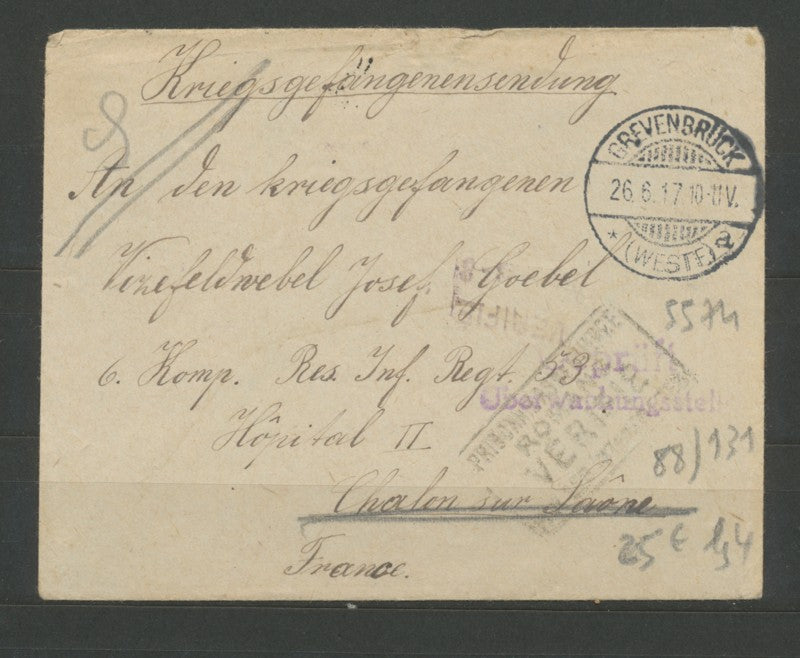 Kriegsgefangenensendung
GREVENBRÜCK
26.6.17. 10-11V.
* (WESTF.) a
An den kriegsgefangenen
Vizefeldwebel Josef Goebel
5574
6. Komp. Res. Inf. Regt. 53.
Überwachungsstelle
Hôpital II
88/131
Chalon sur Saône
25€ 1,4
France.